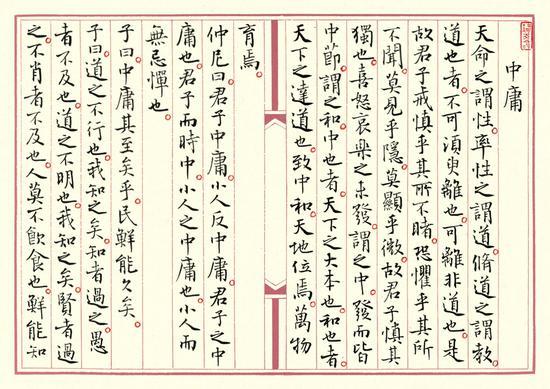 中庸
天命之謂性。率性之謂道。脩道之謂教。
道也者。不可須臾離也。可離非道也。是
故君子戒慎乎其所不睹。恐懼乎其所
不聞。莫見乎隱。莫顯乎微。故君子慎其
獨也。喜怒哀樂之未發。謂之中。發而皆
中節。謂之和。中也者。天下之大本也。和也者。
天下之達道也。致中和。天地位焉。萬物
育焉。
仲尼曰。君子中庸。小人反中庸。君子之中
庸也。君子而時中。小人之中庸也。小人而
無忌憚也。
子曰。中庸其至矣乎。民鮮能久矣。
子曰。道之不行也。我知之矣。知者過之。愚
者不及也。道之不明也。我知之矣。賢者過
之。不肖者不及也。人莫不飲食也。鮮能知